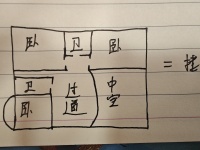 卧 卫 卧
卫 过道 中空 =
卧